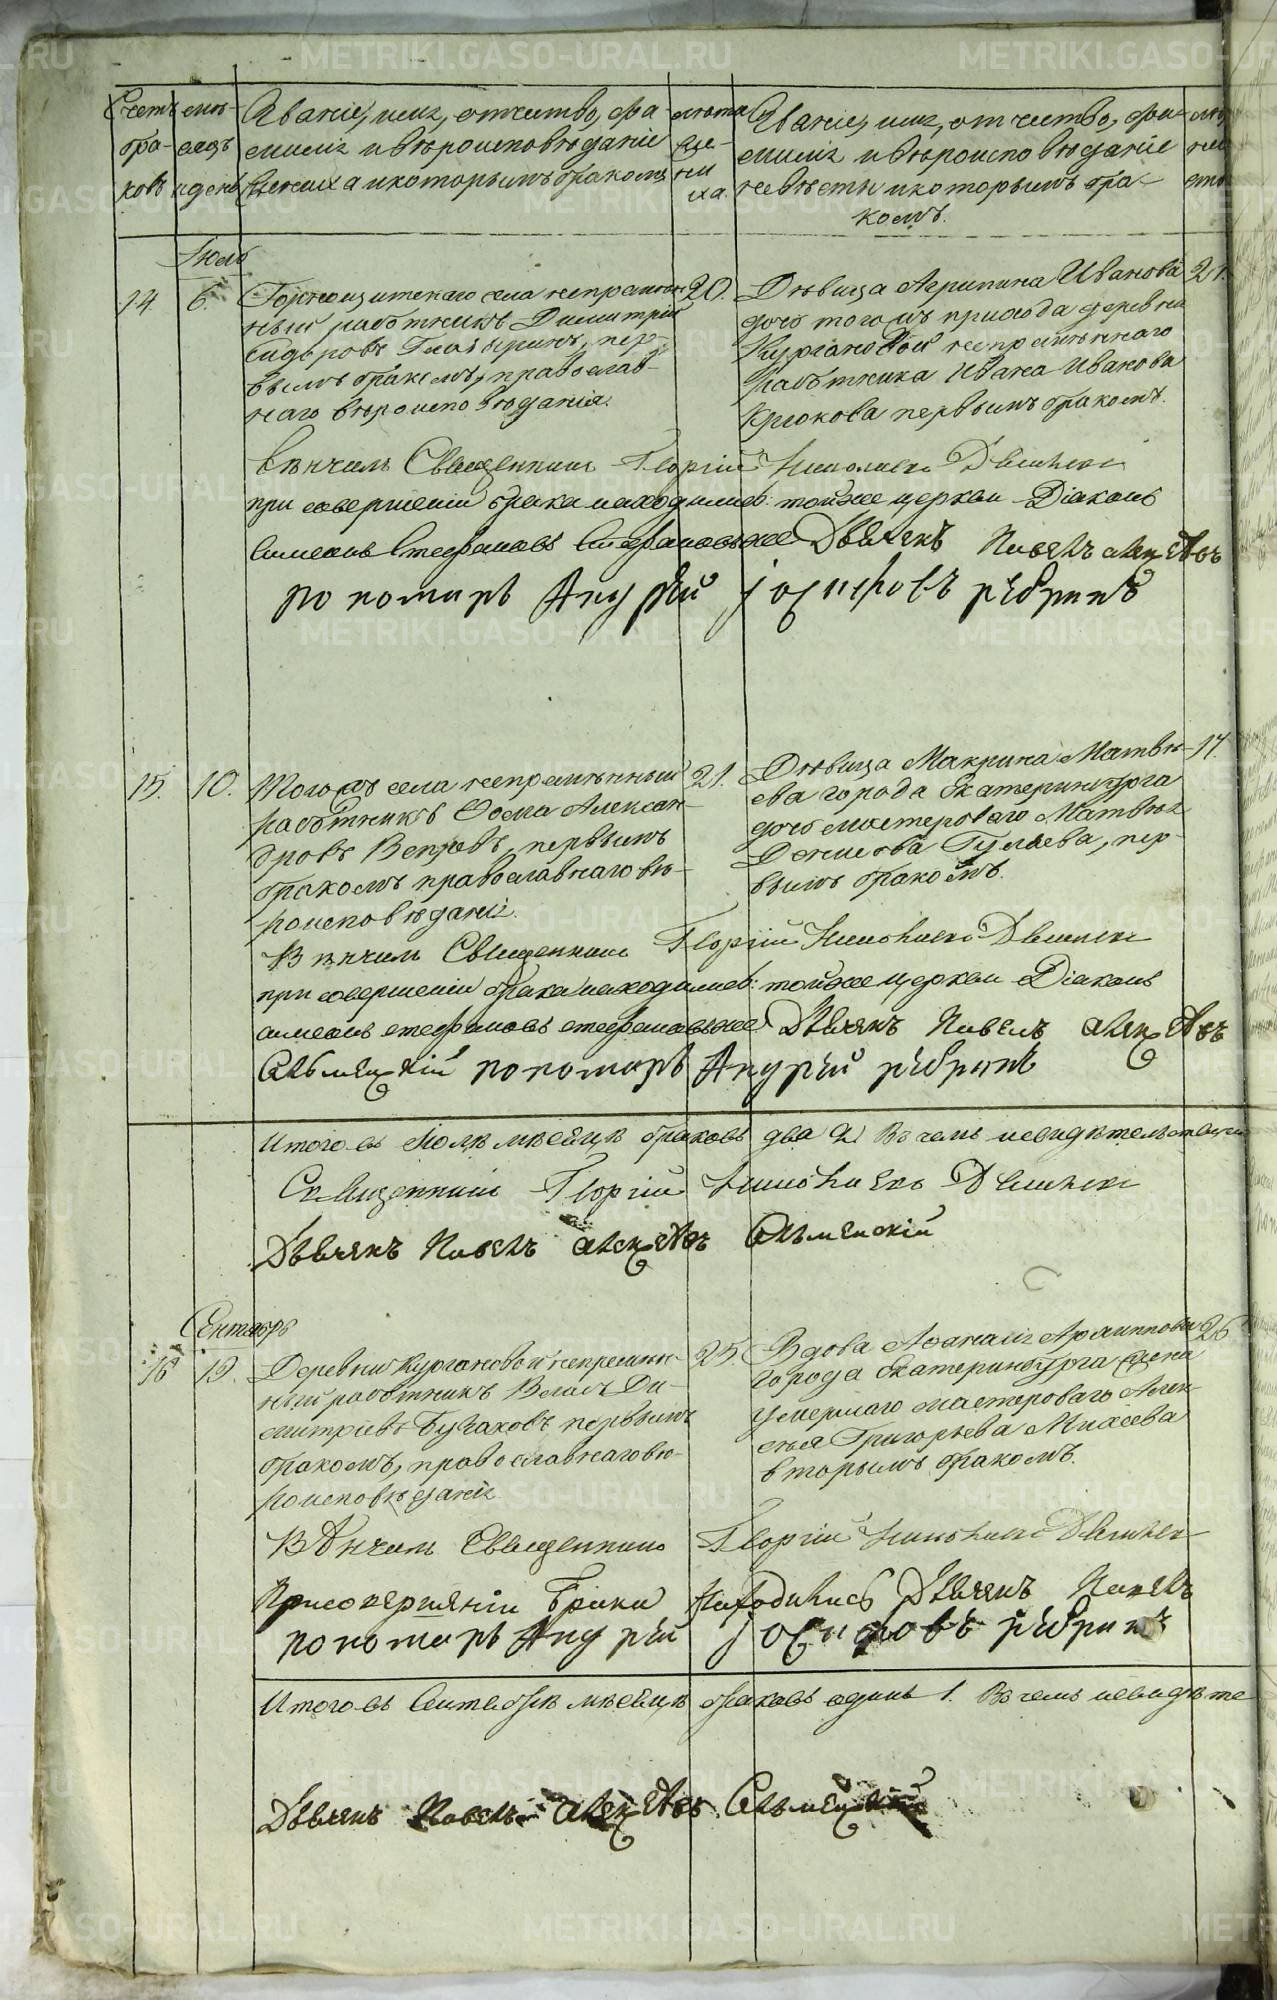 Счетъ бра-ковъ
мѣ-сяцъ и день
Званіе, имя, отчество, фа-
милія и вѣроисповѣданіе
жениха и которымъ бракомъ
лѣта же-ни-ха.
Званіе, имя, отчество, фа-
милія и вѣроисповѣданіе
невѣсты и которымъ бра-
комъ.
Іюль
14 6.
Горнощитскаго села непремѣн-
ный работникъ Димитрій
Сидоровъ, пер-
вымъ бракомъ, православ-
наго вѣроисповѣданія.
20.
Дѣвица Агрипина Иванова
дочь тогожъ прихода деревни
Кургановой непремѣннаго
работника Ивана Иванова
Крюкова первымъ бракомъ.
21.
Вѣнчалъ Священникъ Георгій Николаевъ
при совершеніи брака находились: тойже церкви Діаконъ
Симеонъ Стефановъ Дьячекъ Павелъ Алексѣевъ
пономарь Андрей Іосифовъ
15. 10.
Тогожъ села непремѣнный
работникъ Ѳома Алексан-
дровъ Вепревъ, первымъ
бракомъ православнаго вѣ-
роисповѣданія.
21.
Дѣвица Макрина Матвѣ-
ева города Екатеринбурга
дочь мастероваго Матвѣя
Денисова Гуляева, пер-
вымъ бракомъ.
17.
Вѣнчалъ Священникъ Георгій Николаевъ
при совершеніи брака находились: тойже церкви Діаконъ
Симеонъ Стефановъ Дьячекъ Павелъ Алексѣевъ
Сельменскій пономарь Андрей
Итого въ Іюлѣ мѣсяцѣ браковъ два 2. Въ чемъ и свидѣтельствуемъ
Священникъ Георгій Николаевъ
Дьячекъ Павелъ Алексѣевъ Сельменскій
Сентябрь
16 12.
Деревни Кургановой непремѣн-
ный работникъ Власъ Ди-
митріевъ первымъ
бракомъ, православнаго вѣ-
роисповѣданія
25.
Вдова Аѳанасія Архиппова
города Екатеринбурга жена
умершаго мастероваго Алек-
сѣя Григорьева
вторымъ бракомъ.
26
Вѣнчалъ Священникъ Георгій Николаевъ
При совершеніи брака находились Дьячекъ Павелъ
пономарь Андрей Іосифовъ
Итого въ Сентябрѣ мѣсяцѣ браковъ одинъ 1. Въ чемъ и свидѣте
Дьячекъ Павелъ Алексѣевъ Сельменскій
METRIKI.GASO-URAL.RU